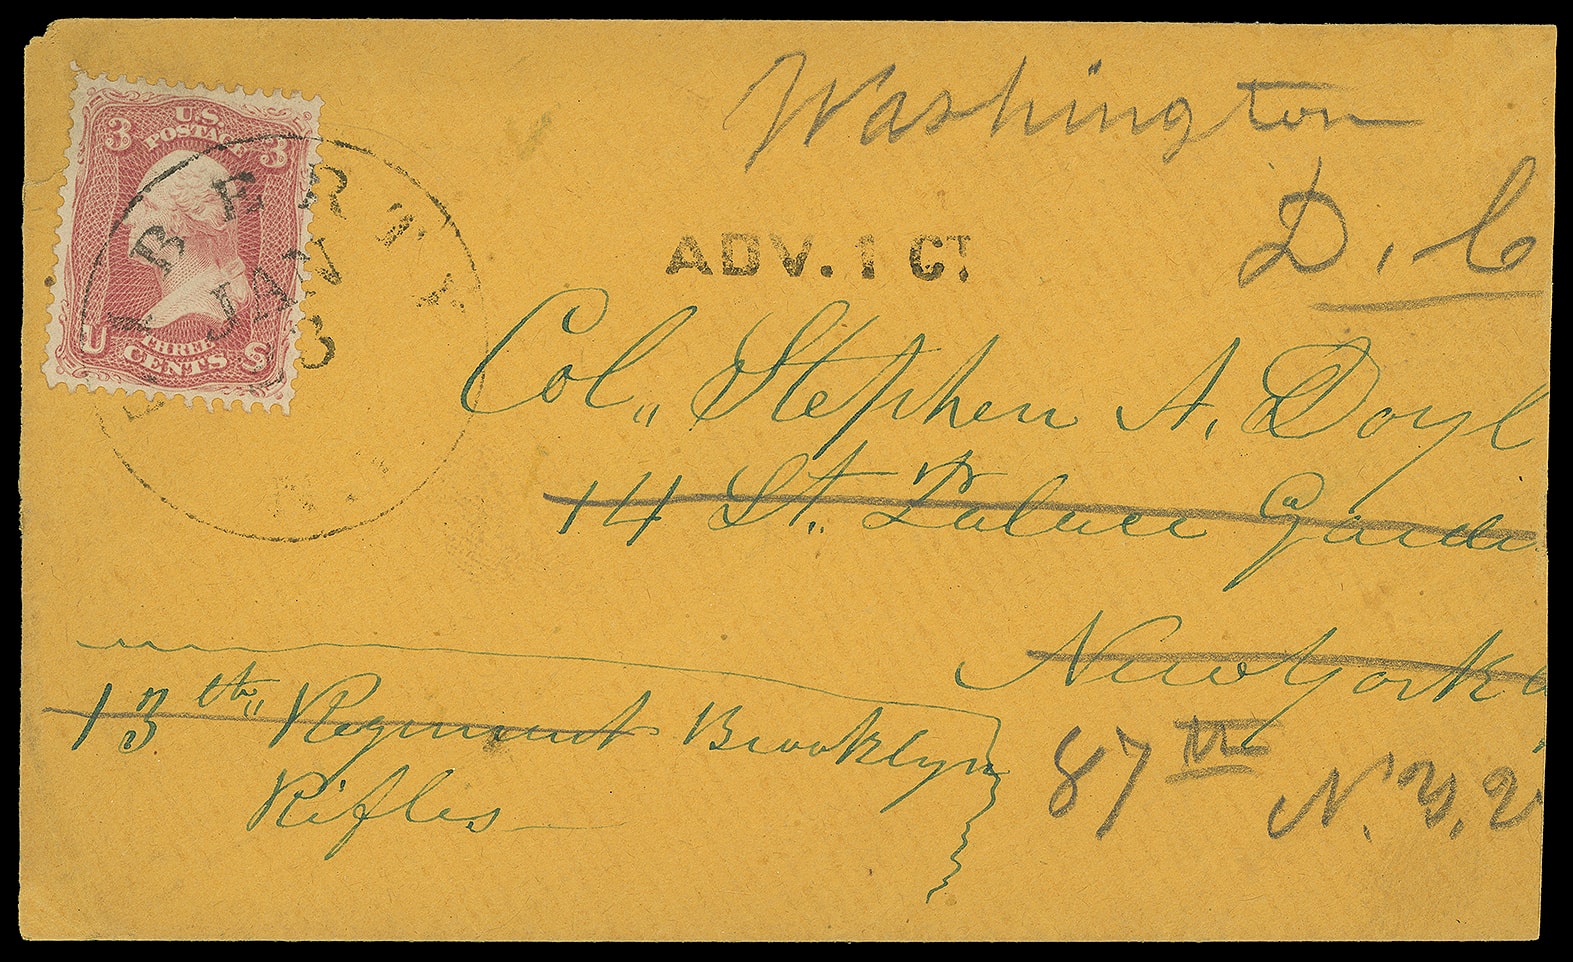 Washington
D. C
U.S.
POSTAGE
3 3
THREE
U CENTS S
LIBERTY
JAN
3
ADV. 1 CT.
Col,, Stephen A. Doyl
14 St. Palace Garde
New York
13th,, Regiment Brooklyn
Rifles
87th N.Y.V